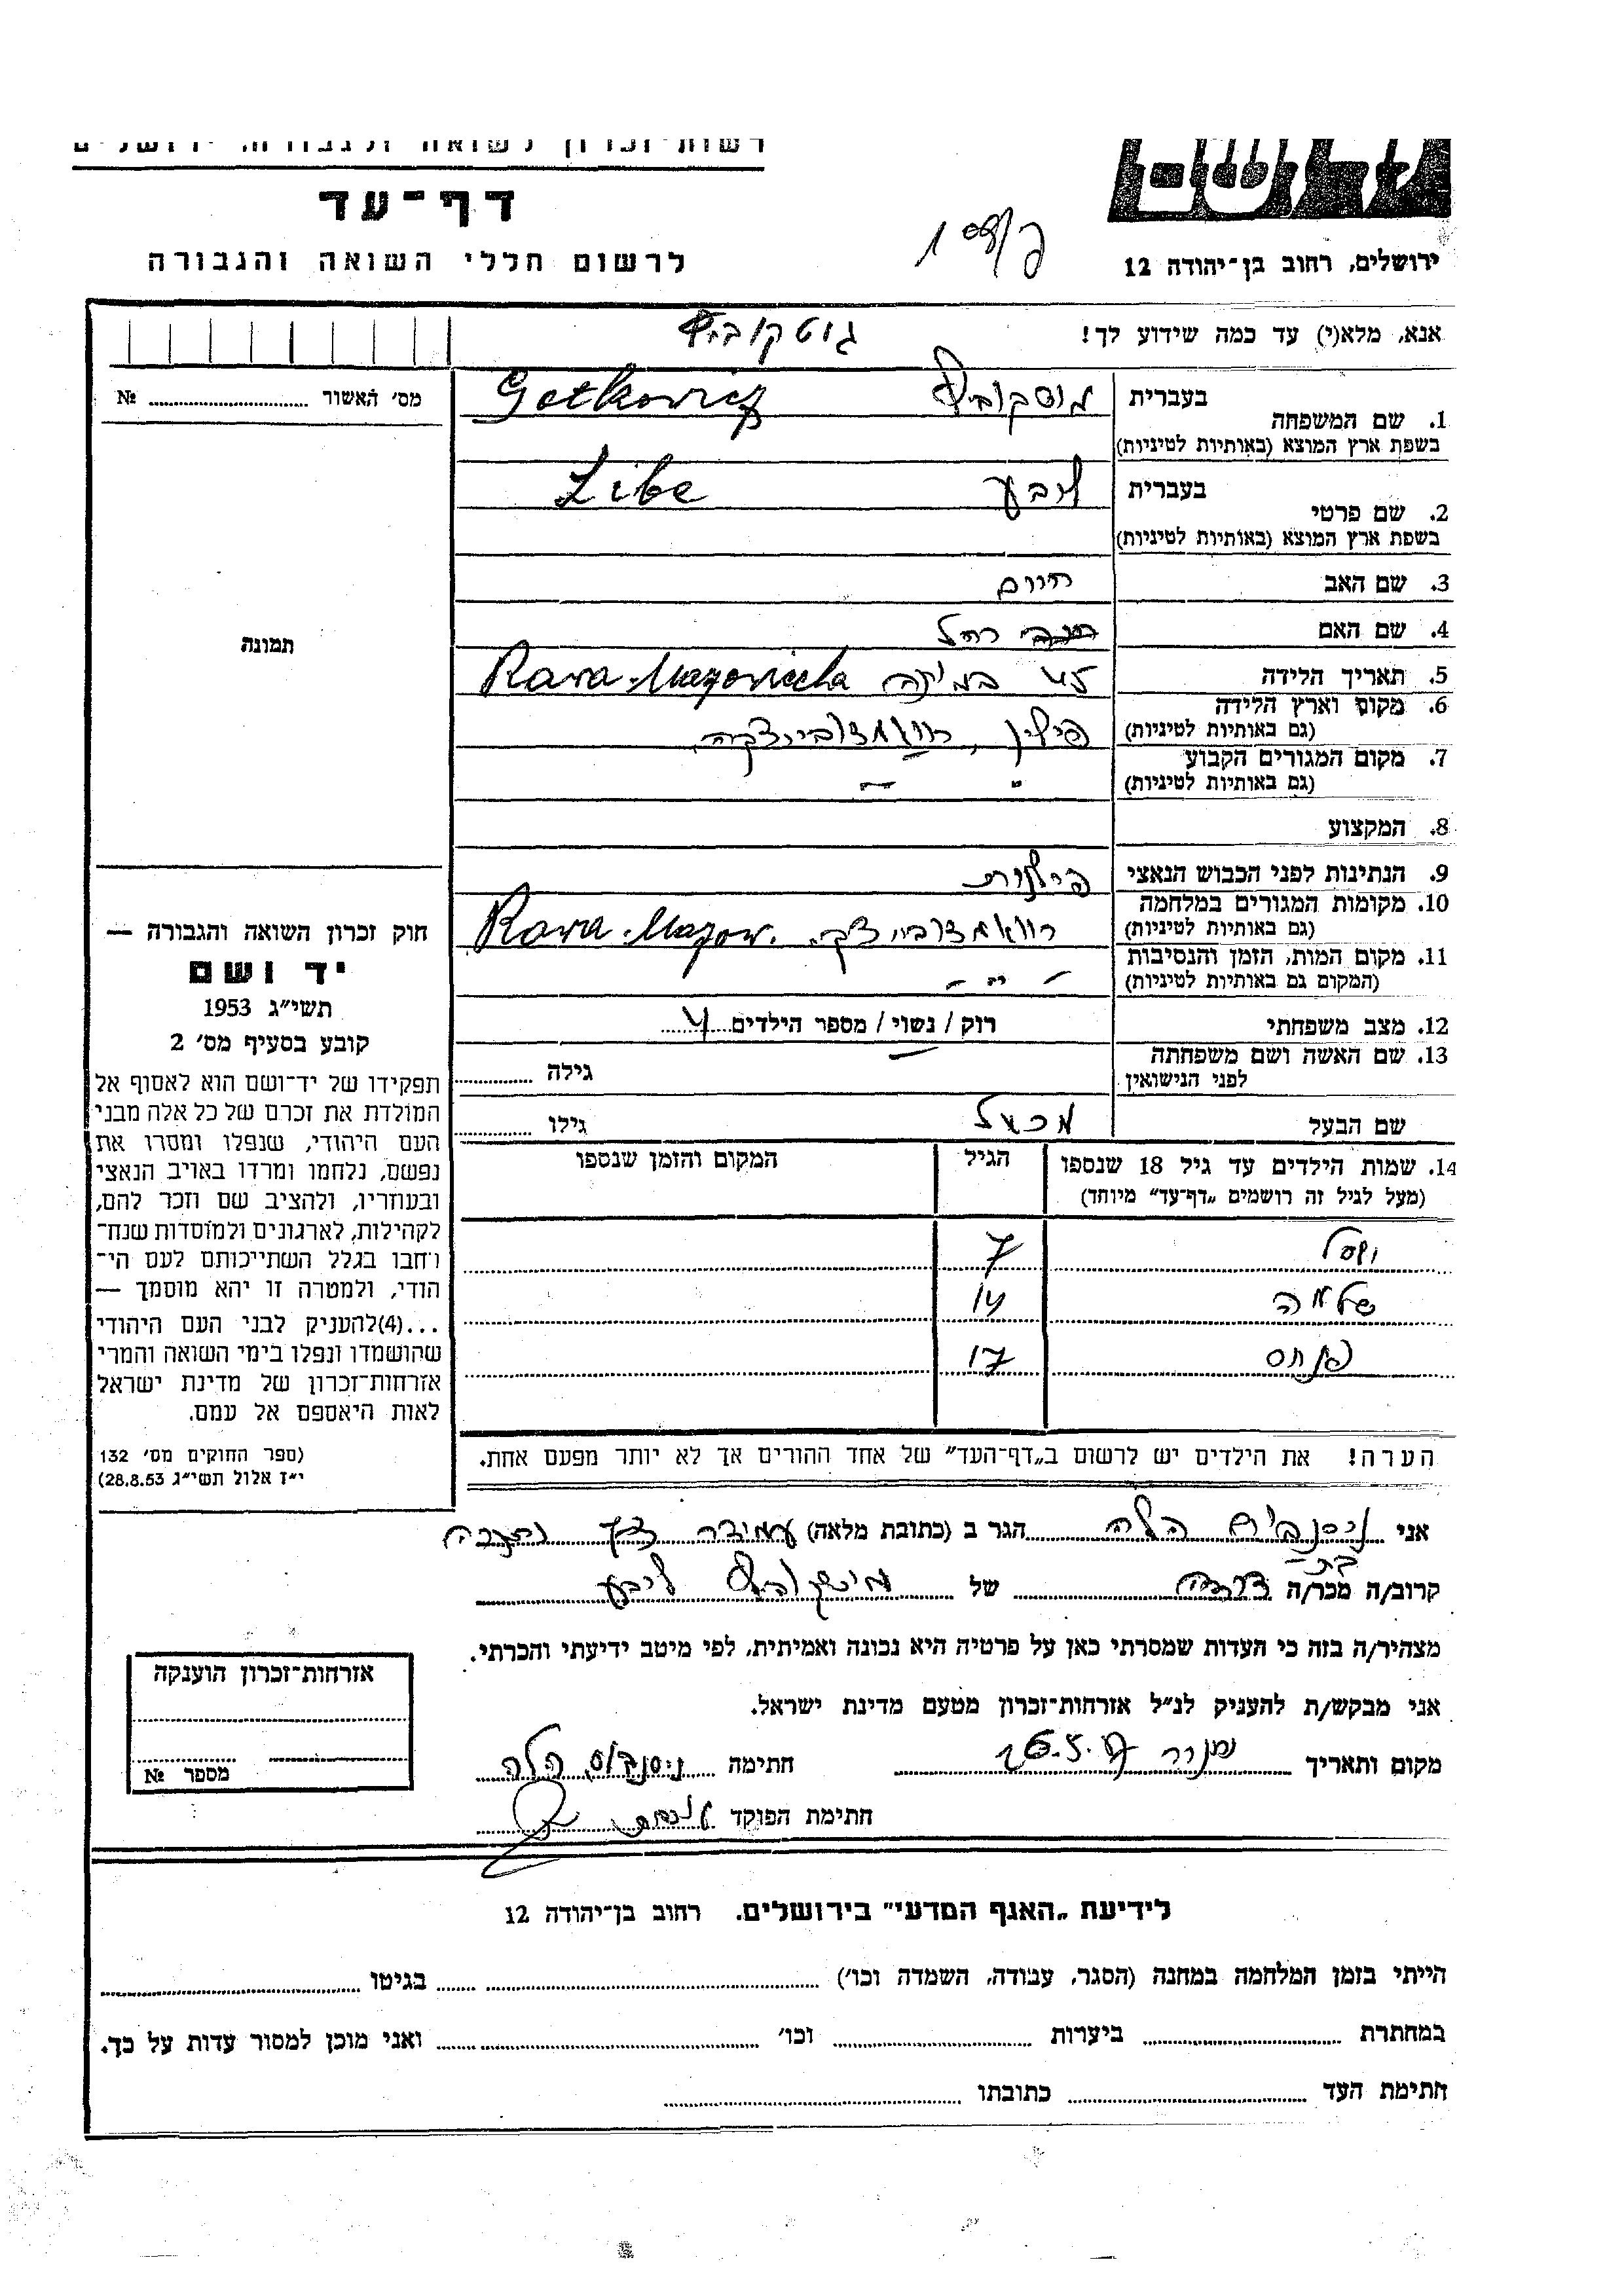 רשות־זכרון לשואה ולגבורה, ירושלים
דף־עד
לרשום חללי השואה והגבורה
ירושלים, רחוב בן־יהודה 12
אנא, מלא(י) עד כמה שידוע לך!
גוטקוביץ
מס׳ האשור № 
1. שם המשפחה בעברית Gotkowicz
בשפת ארץ המוצא (באותיות לטיניות)
2. שם פרטי בעברית ליבע Libe
בשפת ארץ המוצא (באותיות לטיניות)
3. שם האב חיים
4. שם האם רחל
תמונה
5. תאריך הלידה 45
Rawa-Mazowiecka
6. מקום וארץ הלידה (גם באותיות לטיניות) פולין,
7. מקום המגורים הקבוע (גם באותיות לטיניות) - " -
8. המקצוע
9. הנתינות לפני הכבוש הנאצי פולנית
10. מקומות המגורים במלחמה (גם באותיות לטיניות) Rawa-Mazow.
11. מקום המות, הזמן והנסיבות (המקום גם באותיות לטיניות) - " -
12. מצב משפחתי רוק / נשוי / מספר הילדים 4
13. שם האשה ושם משפחתה לפני הנישואין גילה
שם הבעל גילו
14. שמות הילדים עד גיל 18 שנספו הגיל המקום והזמן שנספו
(מעל לגיל זה רושמים „דף־עד" מיוחד)
7
שלמה 14
פנחס 17
הערה! את הילדים יש לרשום ב„דף־העד" של אחד ההורים אך לא יותר מפעם אחת.
חוק זכרון השואה והגבורה —
יד ושם
תשי״ג 1953
קובע בסעיף מס׳ 2
תפקידו של יד־ושם הוא לאסוף אל
המולדת את זכרם של כל אלה מבני
העם היהודי, שנפלו ומסרו את
נפשם, נלחמו ומרדו באויב הנאצי
ובעוזריו, ולהציב שם וזכר להם,
לקהילות, לארגונים ולמוסדות שנח־
רחבו בגלל השתייכותם לעם הי־
הודי, ולמטרה זו יהא מוסמך —
...(4)להעניק לבני העם היהודי
שהושמדו ונפלו בימי השואה והמרי
אזרחות־זכרון של מדינת ישראל
לאות היאספם אל עמם.
(ספר החוקים מס׳ 132
י״ז אלול תשי״ג 28.8.53)
אני ניסנבוים הלה הגר ב (כתובת מלאה)
קרוב/ה מכר/ה של ליבע
מצהיר/ה בזה כי העדות שמסרתי כאן על פרטיה היא נכונה ואמיתית, לפי מיטב ידיעתי והכרתי.
אני מבקש/ת להעניק לנ״ל אזרחות־זכרון מטעם מדינת ישראל.
מקום ותאריך 26.5. חתימה הלה
חתימת הפוקד
אזרחות־זכרון הוענקה
מספר №
לידיעת „האגף המדעי" בירושלים. רחוב בן־יהודה 12
הייתי בזמן המלחמה במחנה (הסגר, עבודה, השמדה וכו׳) בגיטו
במחתרת ביערות וכו׳ ואני מוכן למסור עדות על כך.
חתימת העד כתובתו